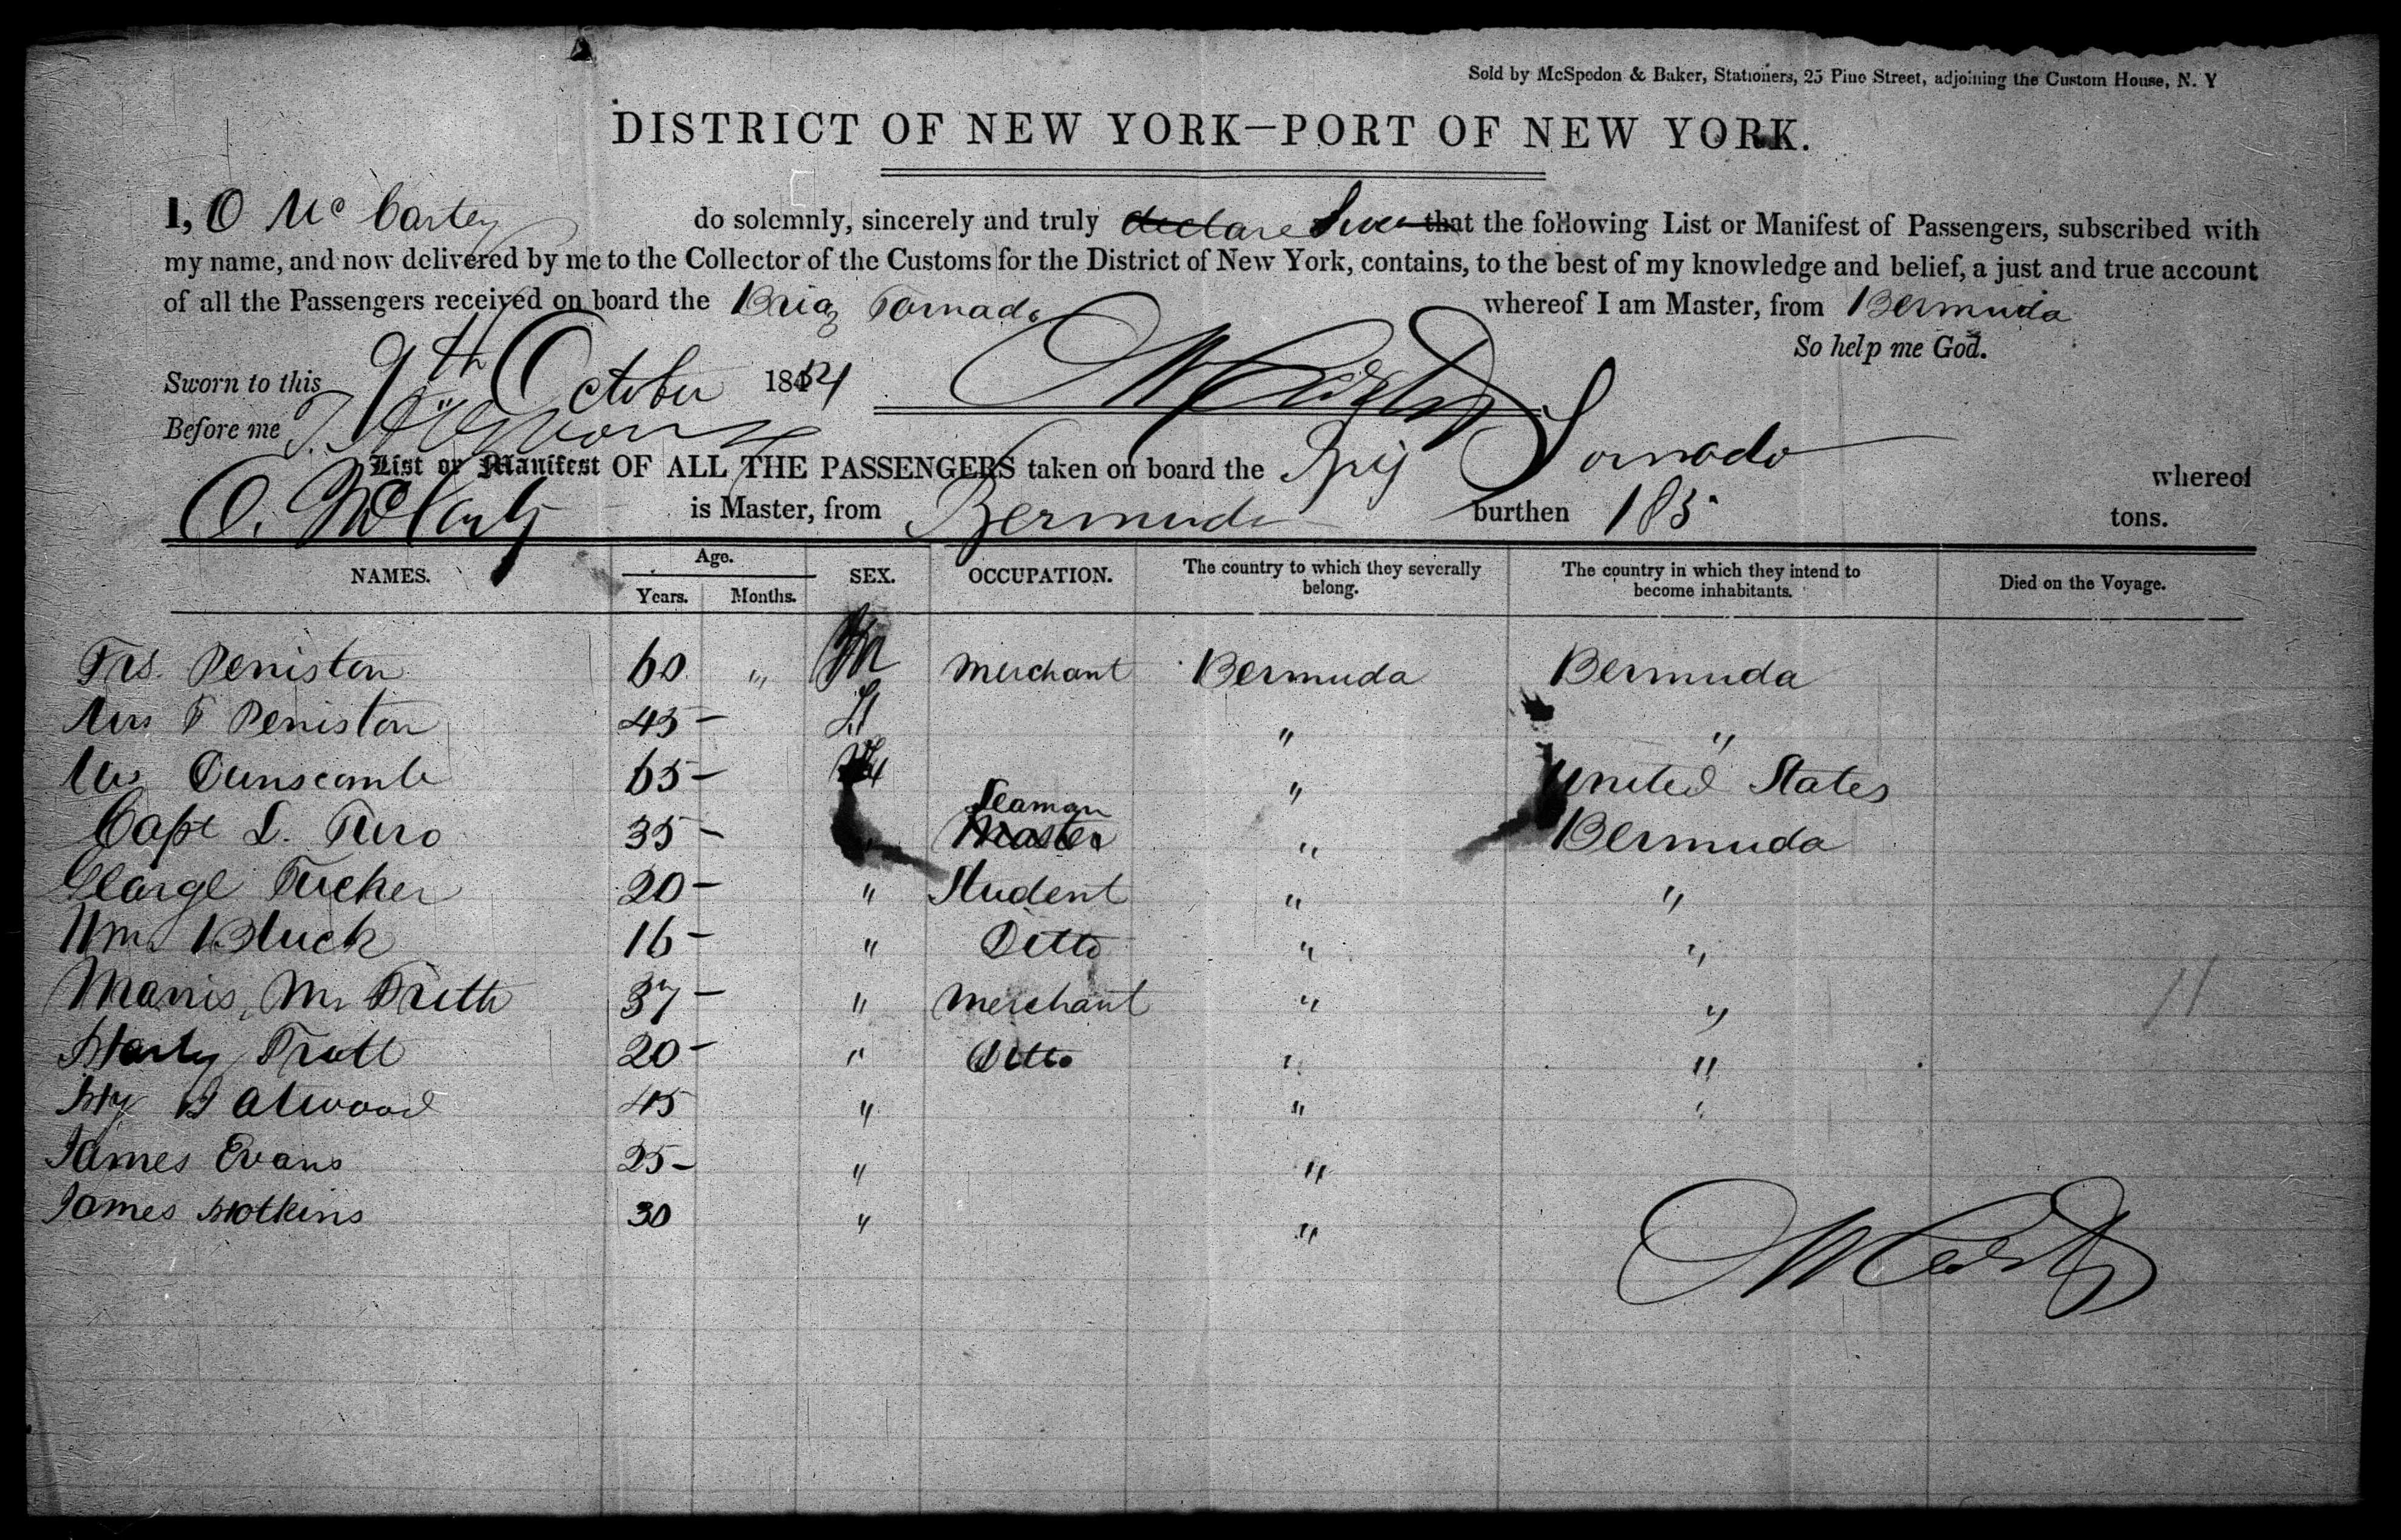 Sold by McSpedon & Baker, Stationers, 25 Pine Street, adjoining the Custom House, N. Y
DISTRICT OF NEW YORK—PORT OF NEW YORK.
I, O Mc Cartey do solemnly, sincerely and truly declare that the following List or Manifest of Passengers, subscribed with
my name, and now delivered by me to the Collector of the Customs for the District of New York, contains, to the best of my knowledge and belief, a just and true account
of all the Passengers received on board the Brig Tornado whereof I am Master, from Bermuda
So help me God.
Sworn to this 9th October 184
Before me
List or Manifest OF ALL THE PASSENGERS taken on board the Brig Tornado whereof
O. McCarty is Master, from Bermuda burthen 185 tons.
NAMES. Age. Years. Months. SEX. OCCUPATION. The country to which they severally belong. The country in which they intend to become inhabitants. Died on the Voyage.
Frs. Peniston 60 " M Merchant Bermuda Bermuda
Mrs F Peniston 45 — " "
Mrs Dunscomb 65 — " United States
Capt L. 35 — " Seaman Master " Bermuda
George Tucker 20 — " Student " "
Wm. Bluck 16 — " Ditto " "
M. 37 — " Merchant " "
Harty Trott 20 — " Ditto " "
Hy Atwood 45 " " "
James Evans 25 — " "
James Hotkins 30 " "